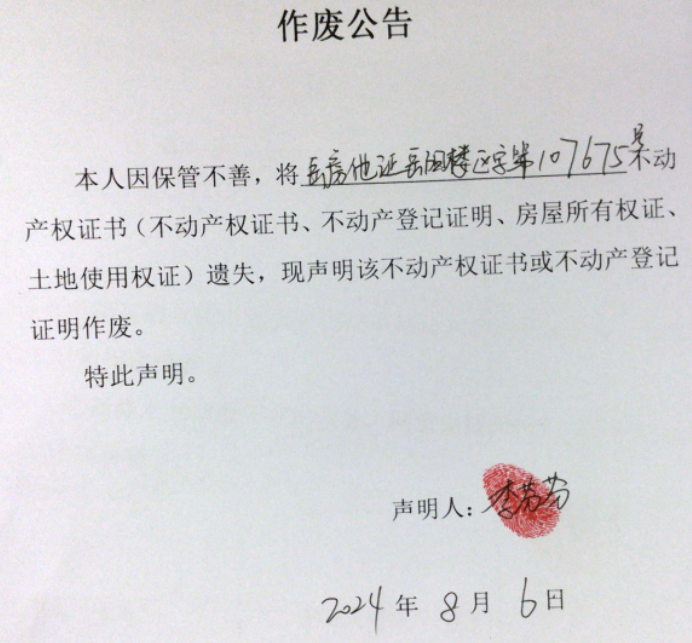 作废公告
本人因保管不善，将岳房他证岳阳楼区字第107675号不动
产权证书（不动产权证书、不动产登记证明、房屋所有权证、
土地使用权证）遗失，现声明该不动产权证书或不动产登记
证明作废。
特此声明。
声明人：李芳芳
2024年8月6日